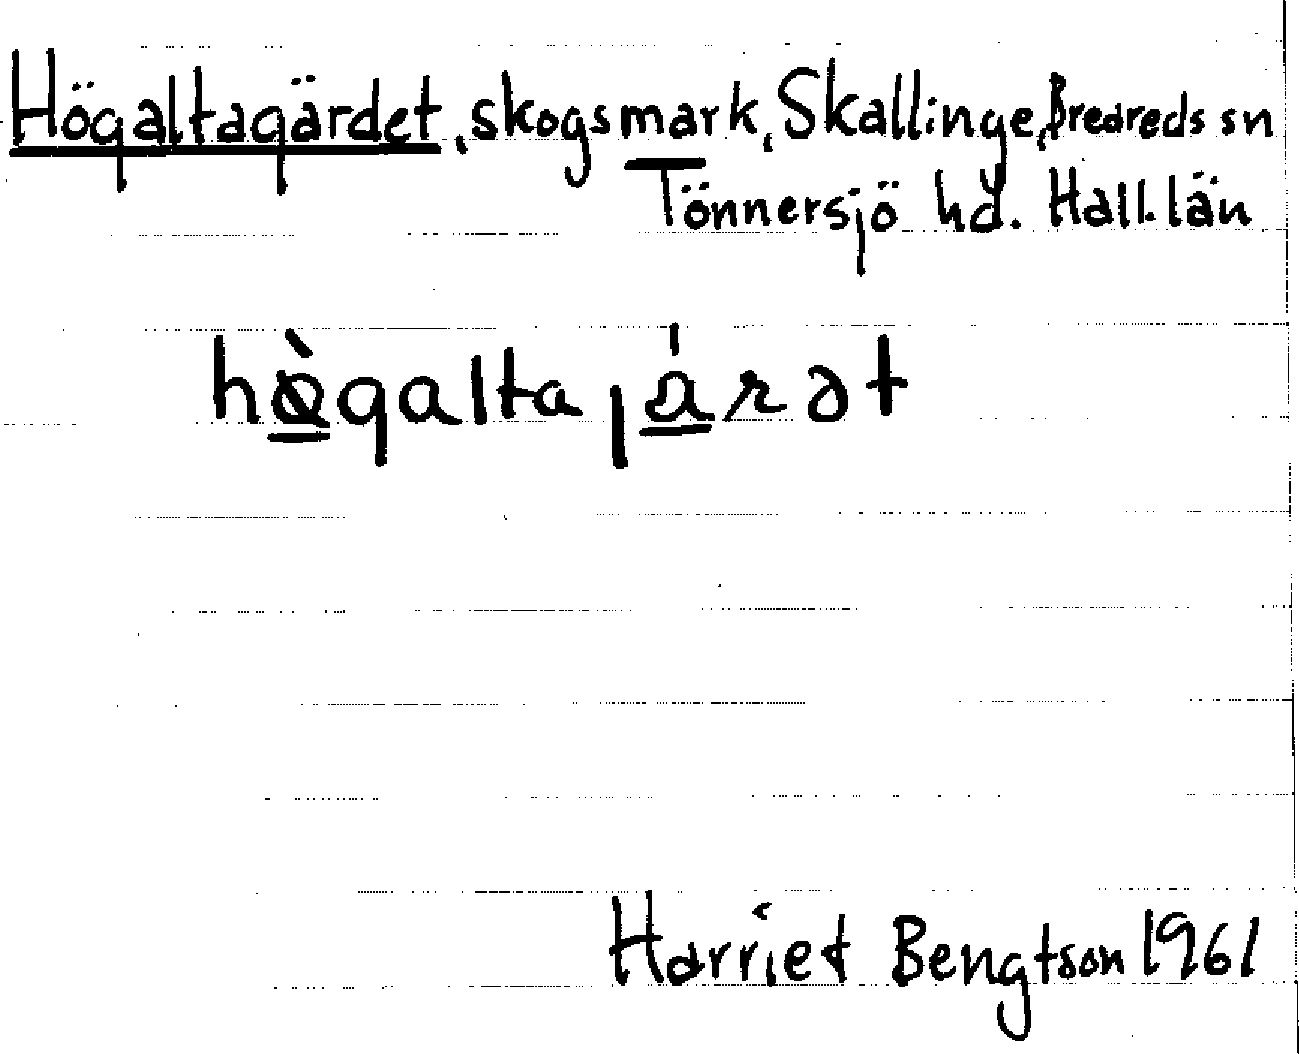 Högaltagärdet, skogsmark, Skallinge, Breareds sn
Tönnersjö hd. Hall. län
hø̀galtajárət
Harriet Bengtson 1961